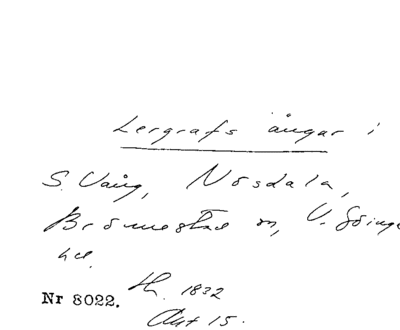 Lergrafs ängar i
S. Vång, Nösdala,
Brönnestad m, V. Göinge
hd.
Th. 1832
Nr 8022.
Akt 15.